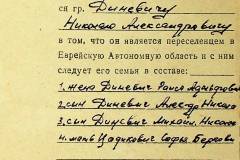 ся гр. Диневичу
Николаю Александровичу
в том, что он является переселенцем в
Еврейскую Автономную область и с ним
следует его семья в составе:
1. жена Диневич Раиса Адольфовна
2. сын Диневич Алексдр Никола
3. сын Диневич Михаил. Никола
4. мать Цадикович Софья Берковн